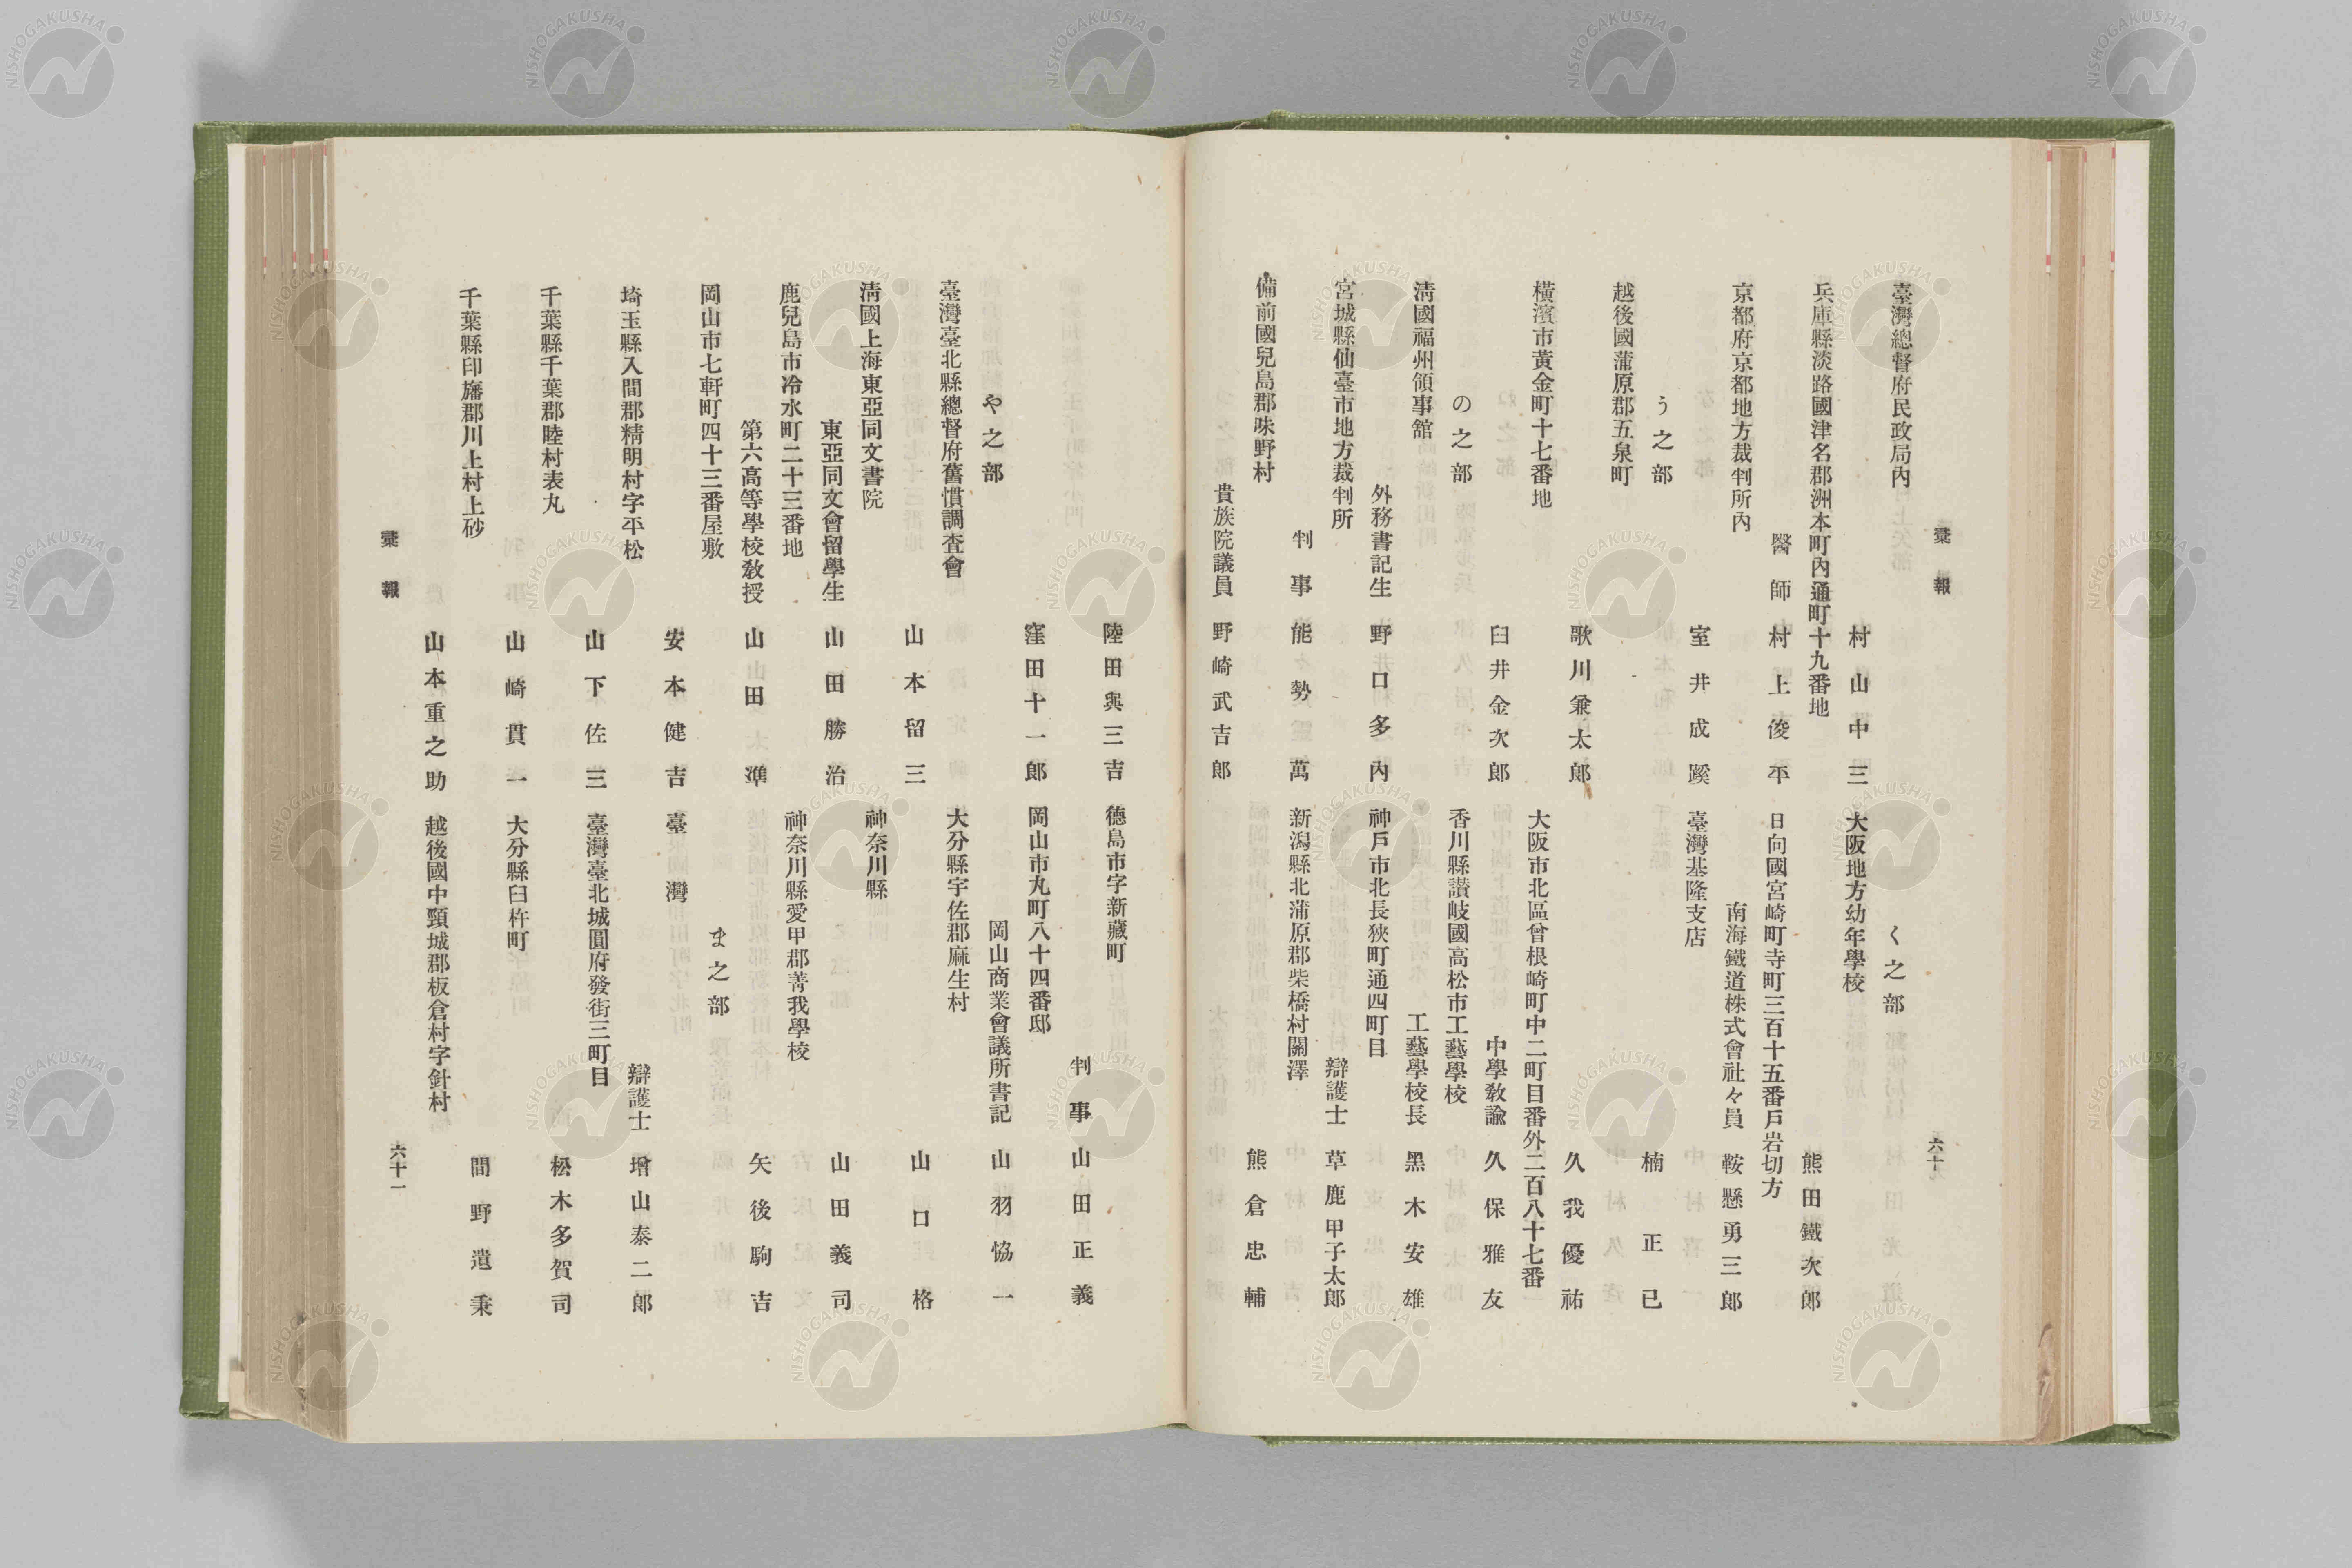 彙報
六十
臺灣總督府民政局內
村山中三
兵庫縣淡路國津名郡洲本町內通町十九番地
醫師 村上俊平
京都府京都地方裁判所內
室井成蹊
う之部
越後國蒲原郡五泉町
歌川兼太郎
橫濱市黃金町十七番地
臼井金次郎
の之部
淸國福州領事舘
外務書記生 野口多內
宮城縣仙臺市地方裁判所
判事 能勢萬
備前國兒島郡味野村
貴族院議員 野崎武吉郎
く之部
大阪地方幼年學校
熊田鐵次郎
日向國宮崎町寺町三百十五番戶岩切方
南海鐵道株式會社々員 鞍懸勇三郎
臺灣基隆支店
楠正已
久我優祐
大阪市北區曾根崎町中二町目番外二百八十七番
中學敎諭 久保雅友
香川縣讃岐國高松市工藝學校
工藝學校長 黑木安雄
神戶市北長狹町通四町目
辯護士 草鹿甲子太郎
新潟縣北蒲原郡柴橋村關澤
熊倉忠輔
陸田與三吉
窪田十一郎
や之部
臺灣臺北縣總督府舊慣調査會
山本留三
淸國上海東亞同文書院
東亞同文會留學生 山田勝治
鹿兒島市冷水町二十三番地
第六高等學校敎授 山田準
岡山市七軒町四十三番屋敷
安本健吉
埼玉縣入間郡精明村字平松
山下佐三
千葉縣千葉郡睦村表丸
山崎貫一
千葉縣印旛郡川上村上砂
山本重之助
德島市字新藏町
判事 山田正義
岡山市丸町八十四番邸
岡山商業會議所書記 山羽恊一
大分縣宇佐郡麻生村
山口格
神奈川縣
山田義司
神奈川縣愛甲郡菁我學校
矢後駒吉
ま之部
臺灣
辯護士 增山泰二郎
臺灣臺北城圓府發街三町目
松木多賀司
大分縣臼杵町
間野遺秉
越後國中頸城郡板倉村字針村
彙報
六十一
NISHOGAKUSHA